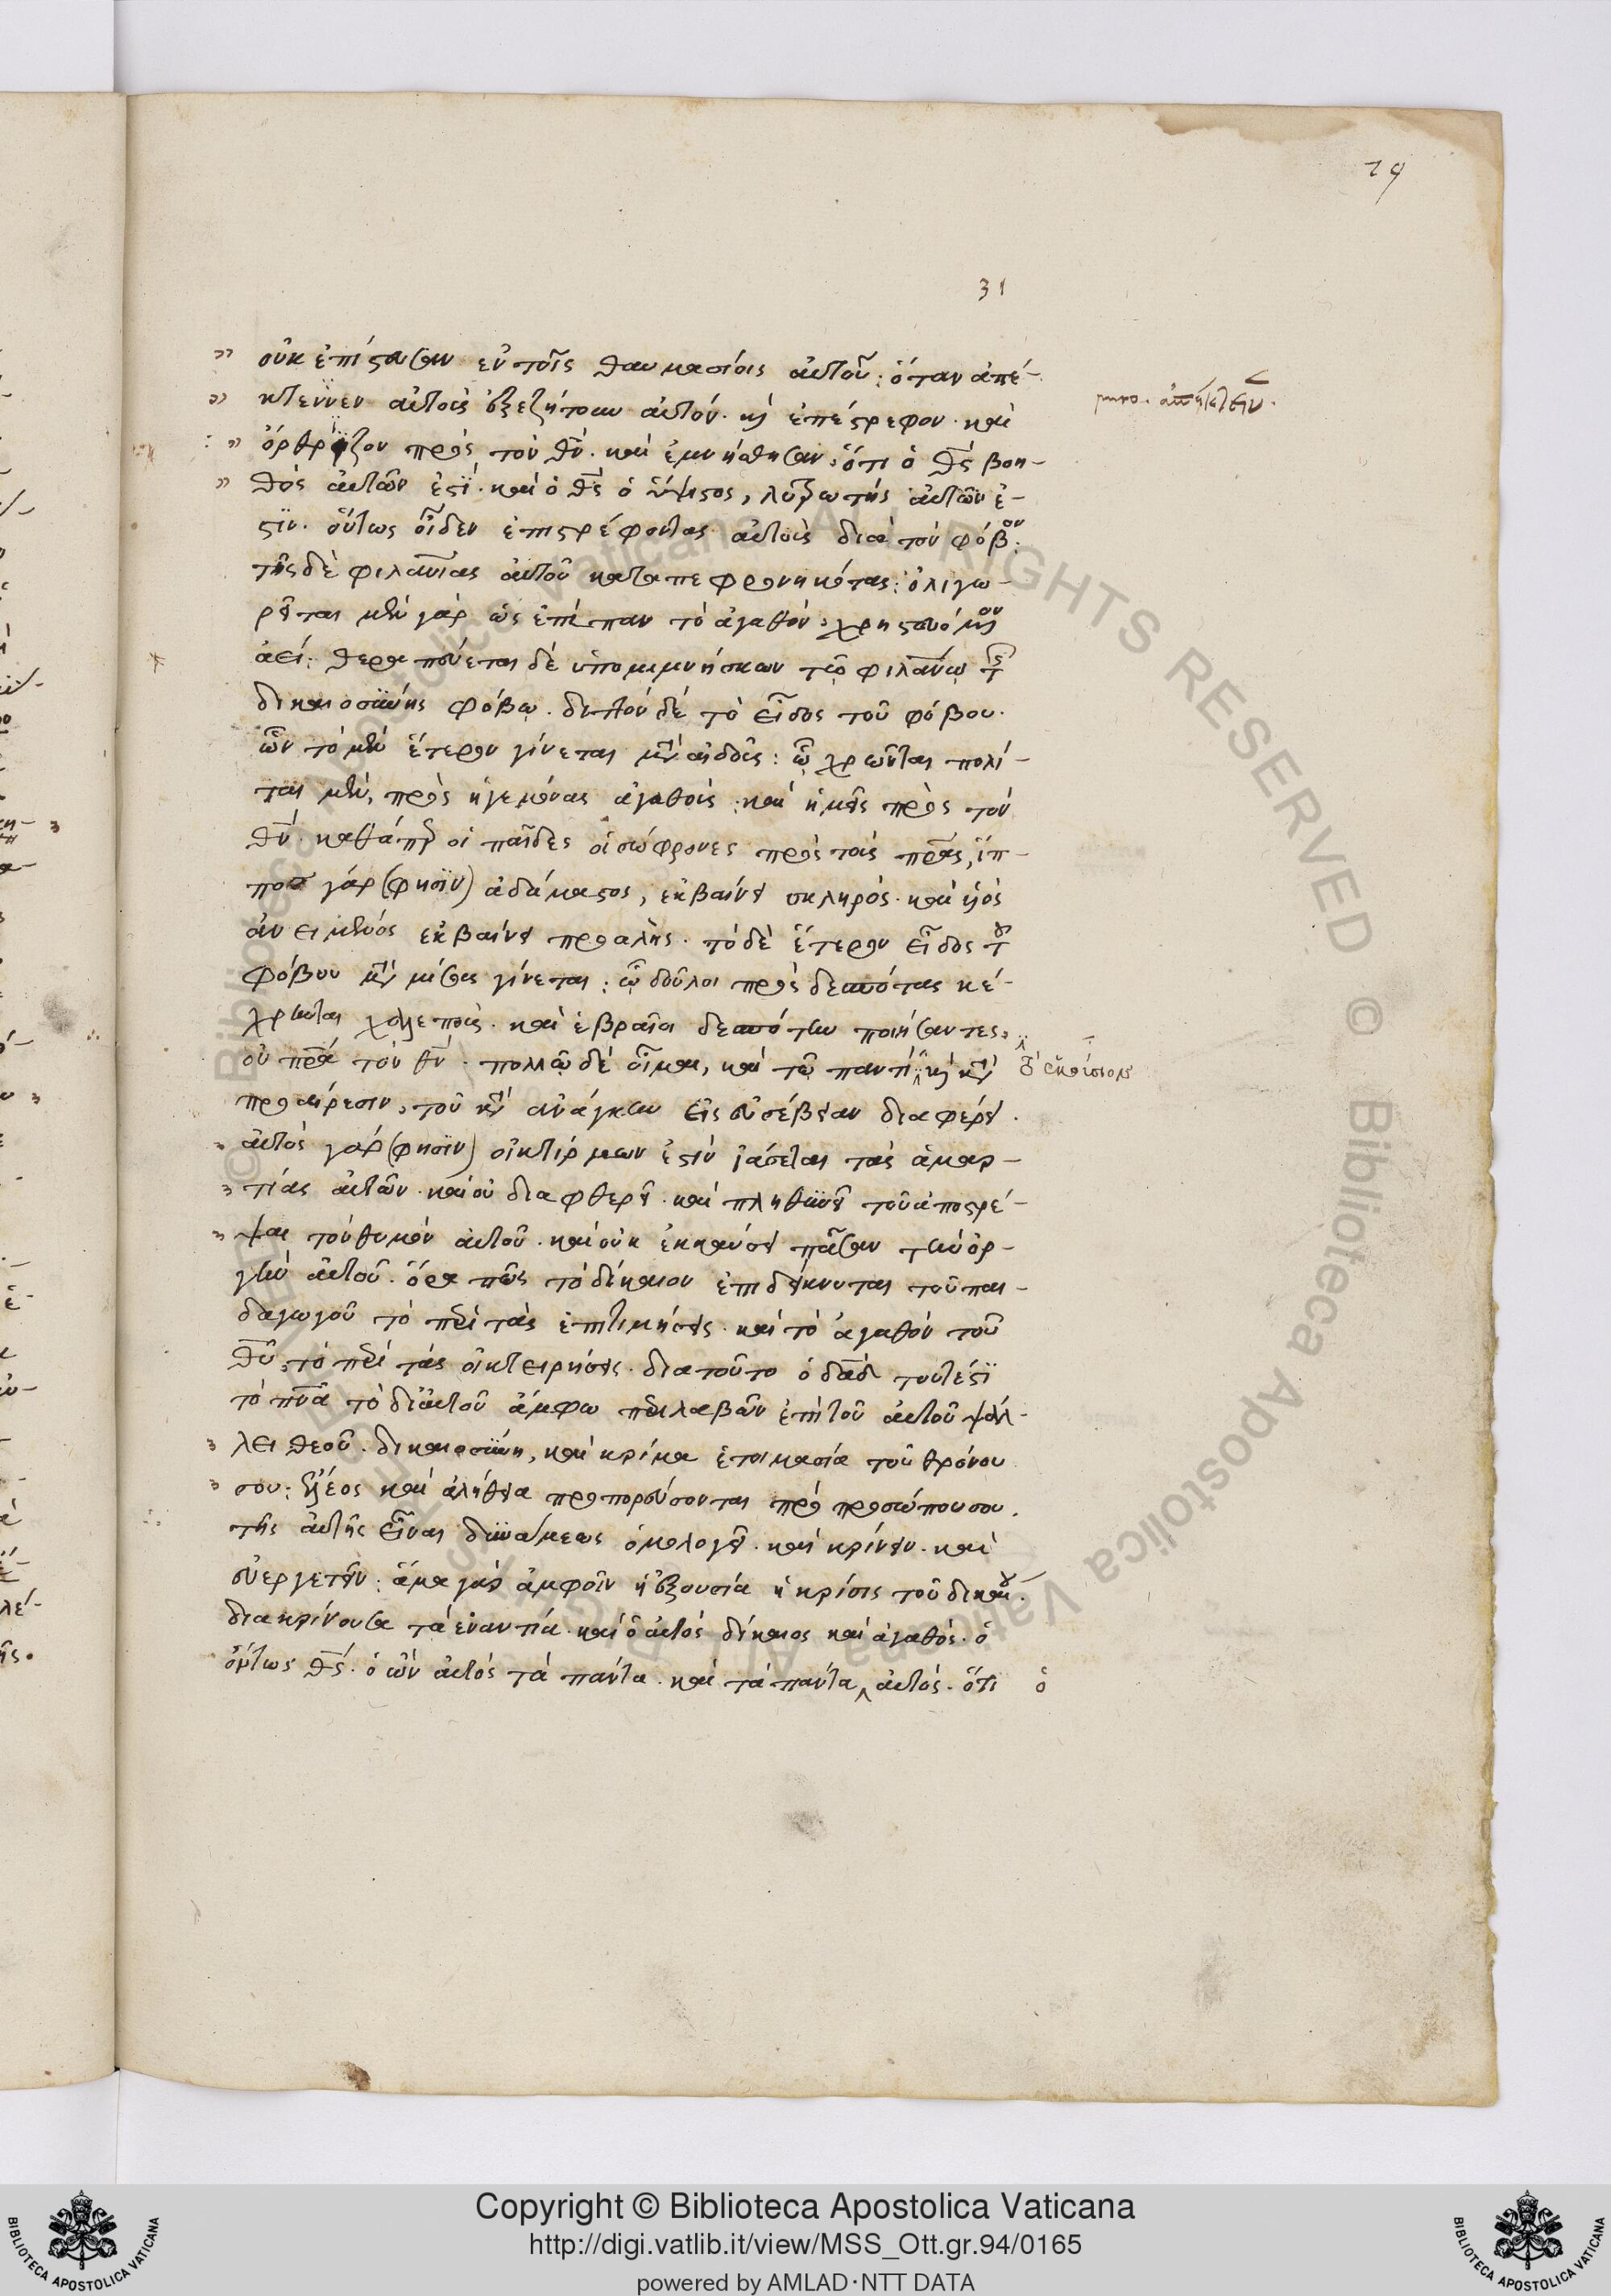 79
31
οὐκ ἐπίστευσαν ἐν τοῖς θαυμασίοις αὐτοῦ: ὅταν ἀπέ-
κτεννεν αὐτοὺς ἐξεζήτουν αὐτόν. κὶ ἐπέστρεφον. καὶ
ὄρθριζον πρὸς τὸν θν. καὶ ἐμνήσθησαν, ὅτι ὁ θς βοη-
θὸς αὐτῶν ἐστὶ. καὶ ὁ θς ὁ ὕψιστος, λυτρωτὴς αὐτῶν ἐ-
στὶν. οὕτως οἶδεν ἐπιστρέφοντας αὐτοὺς διὰ τὸν φόβον:
τῆς δὲ φιλανίας αὐτοῦ καταπεφρονηκότας: ὀλιγω-
ρεῖται μὲν γὰρ ὡς ἐπίπαν τὸ ἀγαθόν, χρηστευόμενον
ἀεί: θεραπεύεται δὲ ὑπομιμνήσκων τῷ φιλανῳ τῆς
δικαιοσύνης φόβῳ. διττὸν δὲ τὸ εἶδος τοῦ φόβου.
ὧν τὸ μὲν ἕτερον γίνεται μετὰ αἰδοῦς: ᾧ χρῶνται πολῖ-
ται μὲν, πρὸς ἡγεμόνας ἀγαθοὺς. καὶ ἡμεῖς πρὸς τὸν
θν. καθάπερ οἱ παῖδες οἱ σώφρονες πρὸς τοὺς πρας, ἵπ-
πος γὰρ (φησὶν) ἀδάμαστος, ἐκβαίνει σκληρὸς. καὶ υἱὸς
ἀνειμένος ἐκβαίνει προαλὴς. τὸ δὲ ἕτερον εἶδος τοῦ
φόβου μετὰ μίσους γίνεται: ᾧ δοῦλοι πρὸς δεσπότας κέ-
χρηνται χαλεποὺς. καὶ ἑβραῖοι δεσπότην ποιήσαντες,
οὐ πρα τὸν θν. πολλῷ δὲ οἶμαι, καὶ τῷ παντὶ κὶ κατὰ
προαίρεσιν, τοῦ κατὰ ἀνάγκην εἰς εὐσέβειαν διαφέρει.
αὐτὸς γὰρ (φησὶν) οἰκτίρμων ἐστὶν ἰάσεται τὰς ἁμαρ-
τίας αὐτῶν. καὶ οὐ διαφθερεῖ. καὶ πληθυνεῖ τοῦ ἀποστρέ-
ψαι τὸν θυμὸν αὐτοῦ. καὶ οὐκ ἐκκαύσει πᾶσαν τὴν ὀρ-
γὴν αὐτοῦ. ὅρα πῶς τὸ δίκαιον ἐπιδείκνυται τοῦ παι-
δαγωγοῦ τὸ περὶ τὰς ἐπιτιμήσεις. καὶ τὸ ἀγαθὸν τοῦ
θυ, τὸ περὶ τὰς οἰκτειρήσεις. διατοῦτο ὁ δαδ τουτέστι
τὸ πνα τὸ δι' αὐτοῦ ἄμφω περιλαβὼν ἐπὶ τοῦ αὐτοῦ ψάλ-
λει θεοῦ. δικαιοσύνη, καὶ κρίμα ἑτοιμασία τοῦ θρόνου
σου: ἔλεος καὶ ἀλήθεια προπορεύσονται πρὸ προσώπου σου.
τῆς αὐτῆς εἶναι δυνάμεως ὁμολογεῖ. καὶ κρίνειν. καὶ
εὐεργετεῖν: ἅμα γὰρ ἀμφοῖν ἡ ἐξουσία ἡ κρίσις τοῦ δικαίου.
διακρίνουσα τὰ ἐναντία. καὶ ὁ αὐτὸς δίκαιος καὶ ἀγαθὸς. ὁ
ὄντως θς. ὁ ὢν αὐτὸς τὰ πάντα. καὶ τὰ πάντα αὐτὸς. ὅτι ὁ
Copyright © Biblioteca Apostolica Vaticana
http://digi.vatlib.it/view/MSS_Ott.gr.94/0165
powered by AMLAD·NTT DATA
BIBLIOTECA APOSTOLICA VATICANA
BIBLIOTECA APOSTOLICA VATICANA
© Biblioteca Apostolica Vaticana ALL RIGHTS RESERVED © Biblioteca Apostolica Vaticana ALL RIGHTS RESERVED